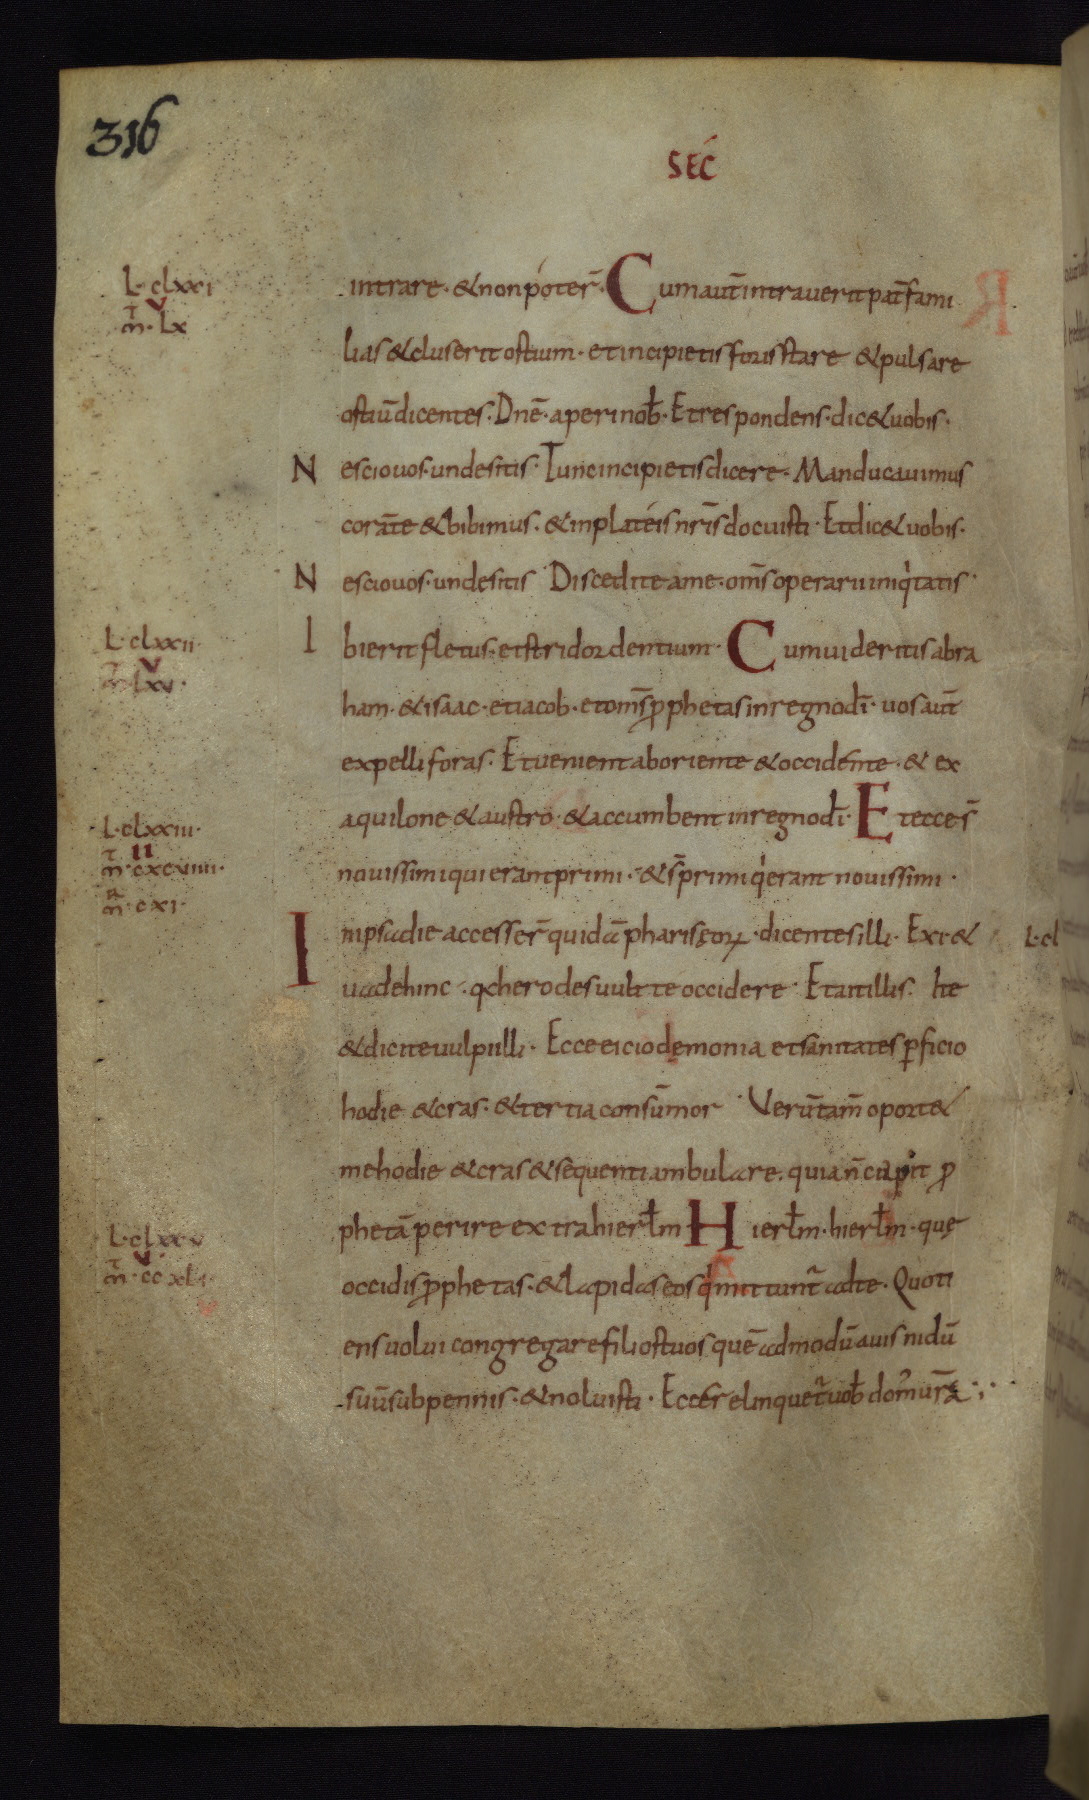 316
SEC̄
L. clxxi
V
m̄t. lx
intrare. & non poter̄. Cum aut̄ intrauerit pat̄ fami
lias & cluserit ostium. et incipietis foris stare & pulsare
ostiū dicentes. Dn̄e. aperi nob̄. Et respondens. dic& uobis.
Nescio uos. unde sitis. Tunc incipietis dicere. Manducauimus
corāte & bibimus. & in plateis nr̄is docuisti. Et dic& uobis.
Nescio uos. unde sitis. Discedite a me. om̄s operarii iniqͥtatis.
L. clxxii.
V
m̄t. lxv.
Ibi erit fletus. et stridor dentium. Cum uideritis abra
ham. & isaac. et iacob. et om̄s ꝓphetas in regno dī. uos aut̄
expelli foras. Et uenient ab oriente & occidente. & ex
aquilone & austro. & accumbent in regno dī. Et ecce s̄
L. clxxiii.
II
m̄t. cxcviiii.
m̄r. cxi.
nouissimi qui erant primi. & s̄ primi qͥ erant nouissimi.
In ipsa die accesser̄ quidā pharisęoꝝ. dicentes illi. Exi. &
L. cl
uade hinc. qa herodes uult te occidere. Et ait illis. Ite
& dicite uulpi illi. Ecce eicio dęmonia et sanitates ꝑficio
hodie & cras. & tertia consūmor. Verūtam̄ oport&
me hodie & cras & sequenti ambulare. quia n̄ capit ꝓ
phetā perire extra hierl̄m. Hierl̄m. hierl̄m. quę
L. clxxv
V
m̄t. ccxli.
occidis ꝓphetas. & lapidas eos q̄ mittunt̄ ad te. Quoti
ens uolui congregare filios tuos quēadmodū auis nidū
suū sub pennis. & noluisti. Ecce relinquet̄ uob̄ domˀ ur̄a